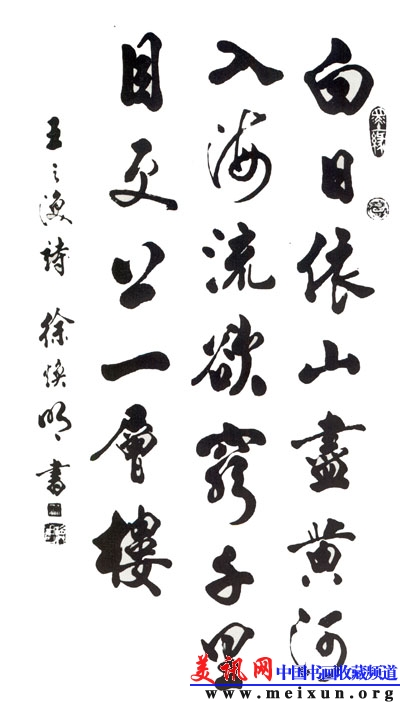 白日依山盡黄河
入海流欲窮千里
目更上一層樓
王之渙詩 徐煥明書
美讯网 中国书画收藏频道
www.meixun.org